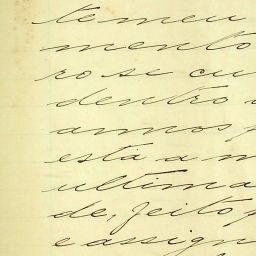 temeu
mento
ro se cu
dentro
annos
está a m
ultima
de, feito
e assign